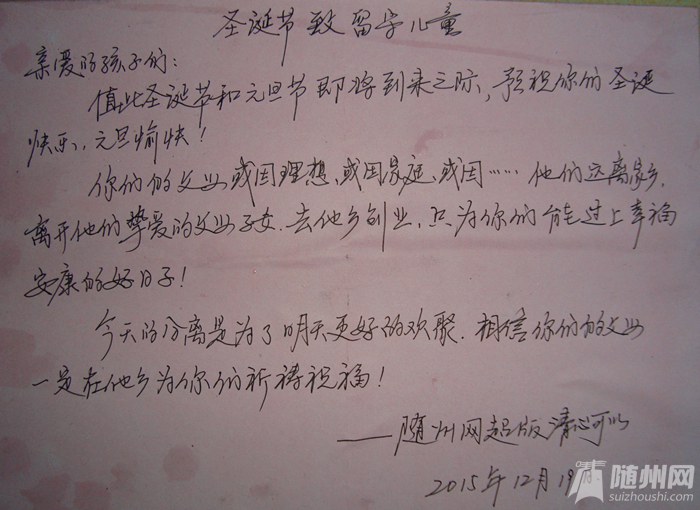 圣诞节致留守儿童
亲爱的孩子们:
值此圣诞节和元旦节即将到来之际,预祝你们圣诞
快乐、元旦愉快!
你们的父母或因理想、或因家庭、或因……他们远离家乡,
离开他们挚爱的父母子女.去他乡创业,只为你们能过上幸福
安康的好日子!
今天的分离是为了明天更好的欢聚.相信你们的父母
一定在他乡为你们祈祷祝福!
——随州网超版清心可以
2015年12月19日
随州网
suizhoushi.com